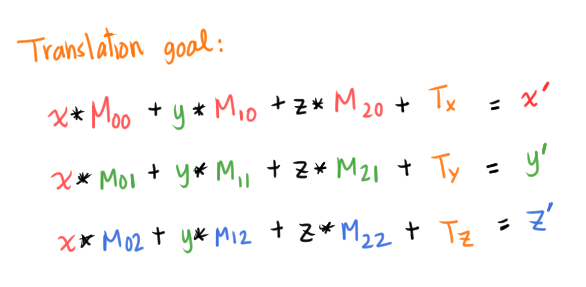 Translation goal:
x * M₀₀ + y * M₁₀ + z * M₂₀ + Tₓ = x'
x * M₀₁ + y * M₁₁ + z * M₂₁ + Tᵧ = y'
x * M₀₂ + y * M₁₂ + z * M₂₂ + T_z = z'